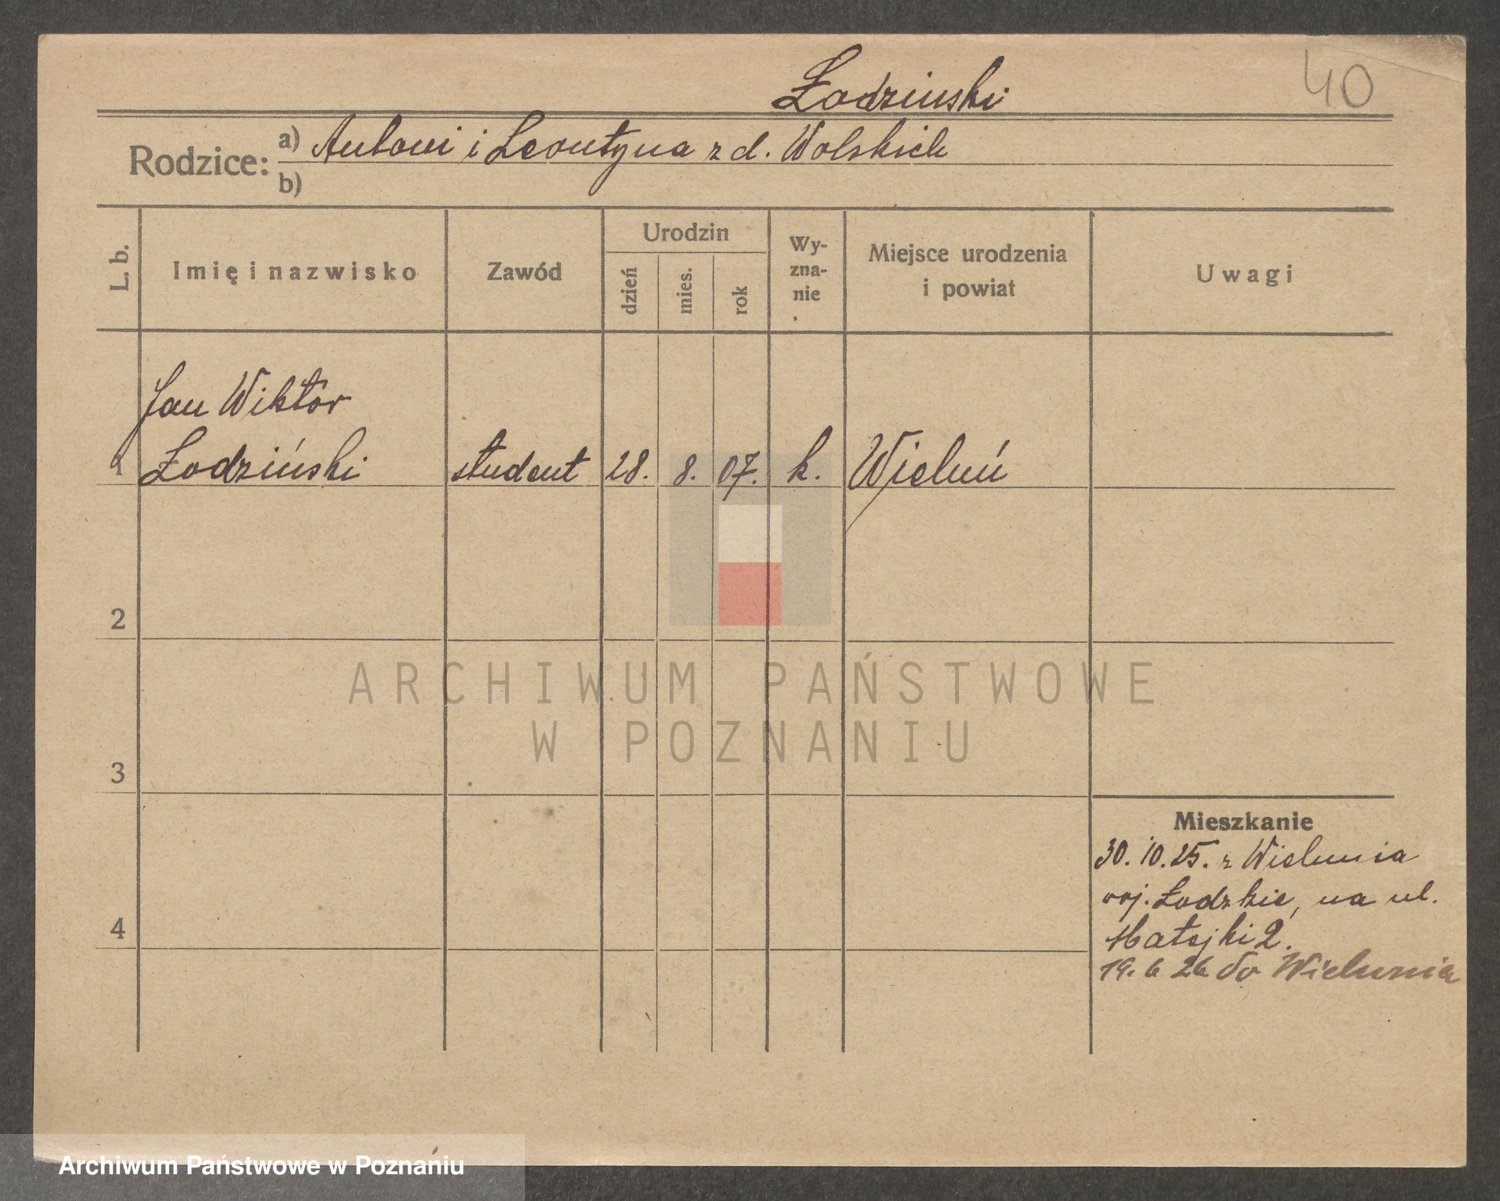 40
Łodzinski
Rodzice: a) Antoni i Leontyna z d. Wolskich
b)
L. b. Imię i nazwisko Zawód Urodzin dzień mies. rok Wy-zna-nie Miejsce urodzenia i powiat Uwagi
Jan Wiktor
1 Łodziński student 28. 8. 07. k. Wieluń
2
ARCHIWUM PAŃSTWOWE
W POZNANIU
3
Mieszkanie
30. 10. 25. z Wielunia
woj. Łodzkie, na ul.
4
Matejki 2.
19. 6 26 do Wielunia
Archiwum Państwowe w Poznaniu